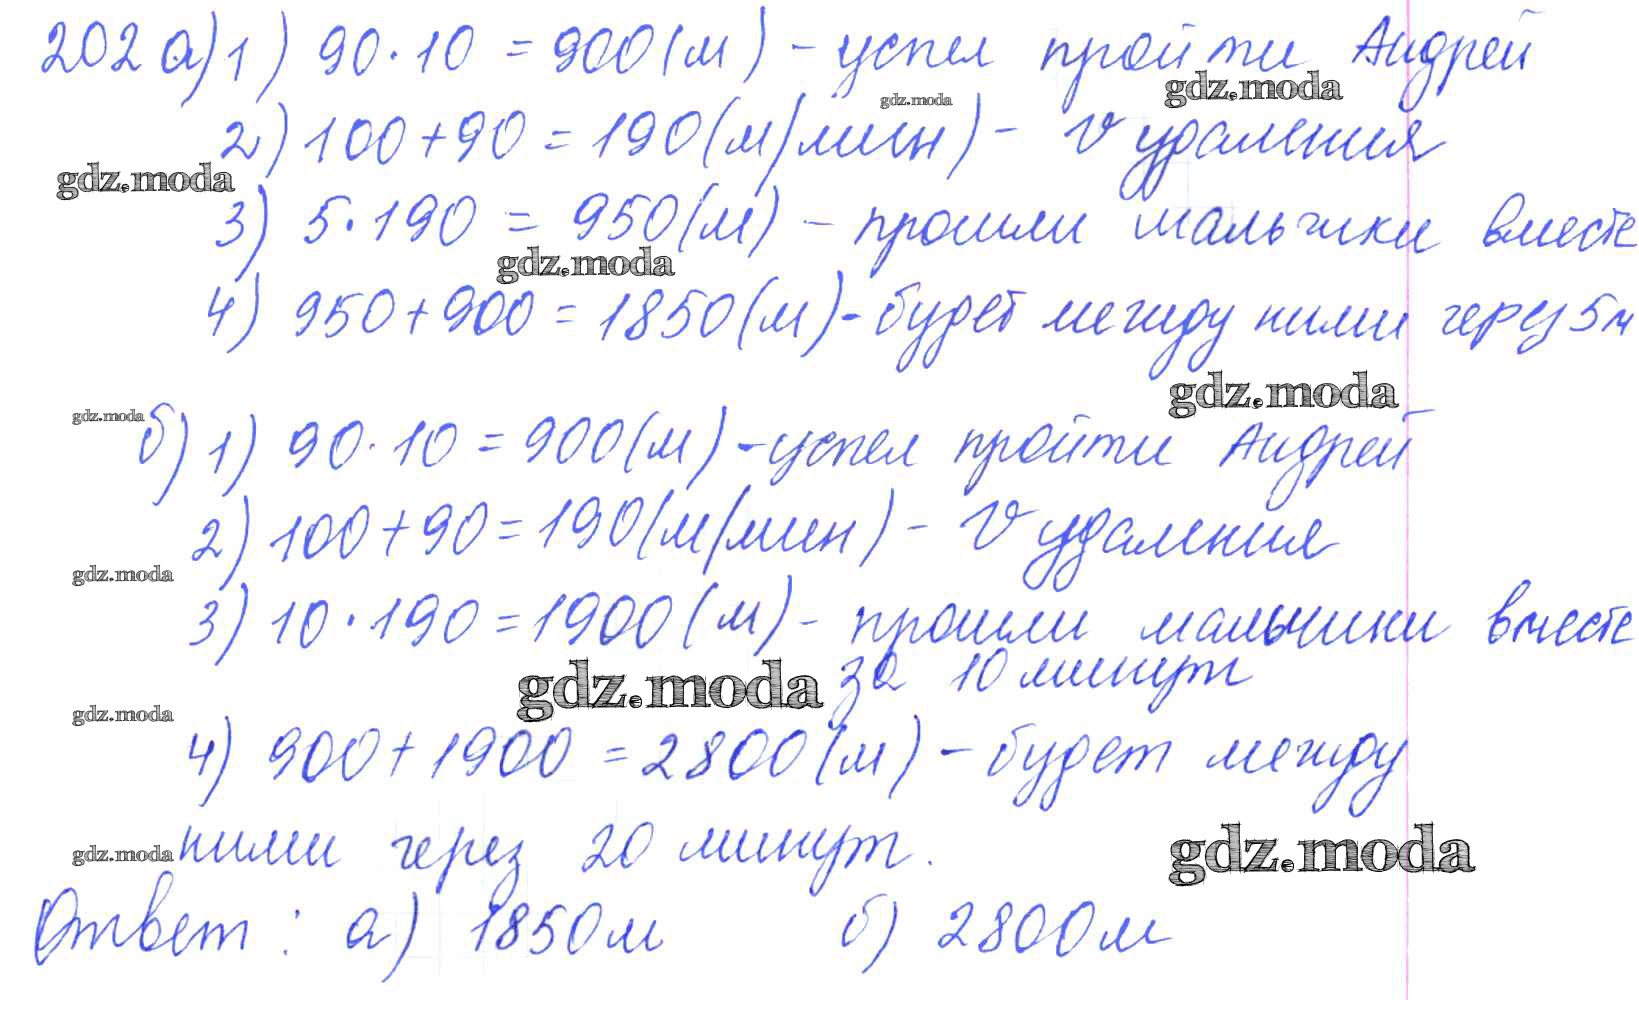 202 а) 1) 90·10 = 900 (м) - успел пройти Андрей
gdz.moda
gdz.moda
2) 100+90 = 190 (м/мин) - V удаления
gdz.moda
3) 5·190 = 950 (м) - прошли мальчики вместе
gdz.moda
4) 950+900 = 1850 (м) - будет между ними через 5м
gdz.moda
gdz.moda
б) 1) 90·10 = 900 (м) - успел пройти Андрей
2) 100+90 = 190 (м/мин) - V удаления
gdz.moda
3) 10·190 = 1900 (м) - прошли мальчики вместе
gdz.moda за 10 минут
gdz.moda
4) 900+1900 = 2800 (м) - будет между
gdz.moda ними через 20 минут.
gdz.moda
Ответ: а) 1850м б) 2800м